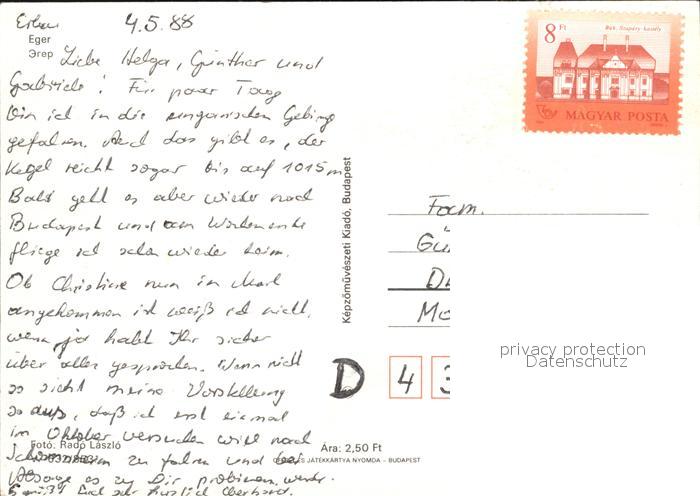 Erlau 4.5.88
Eger
Эгер
Liebe Helga, Günther und
Gabriele! Für paar Tage
bin ich in die ungarischen Gebirge
gefahren. Auch das gibt es, der
Kegel reicht sogar bis auf 1015 m
Bald geht es aber wieder nach
Budapest und am Wochenende
fliege ich schon wieder heim.
Ob Christine nun in Marl
angekommen ist weiß ich nicht,
wenn ja habt Ihr sicher
über alles gesprochen. Wenn nicht
so sieht meine Vorstellung
so aus, daß ich erst einmal
im Oktober versuchen will nach
zu fahren und bei
Absage es zu Dir probieren werde.
Euch sehr herzlich Eberhard.
Fotó: Radó László
Képzőművészeti Kiadó, Budapest
8 Ft
Rák. Szapáry kastély
MAGYAR POSTA
Fam.
Gü
D
Mo
D 4 3
Ára: 2,50 Ft
JÁTÉKKÁRTYA NYOMDA – BUDAPEST
privacy protection
Datenschutz